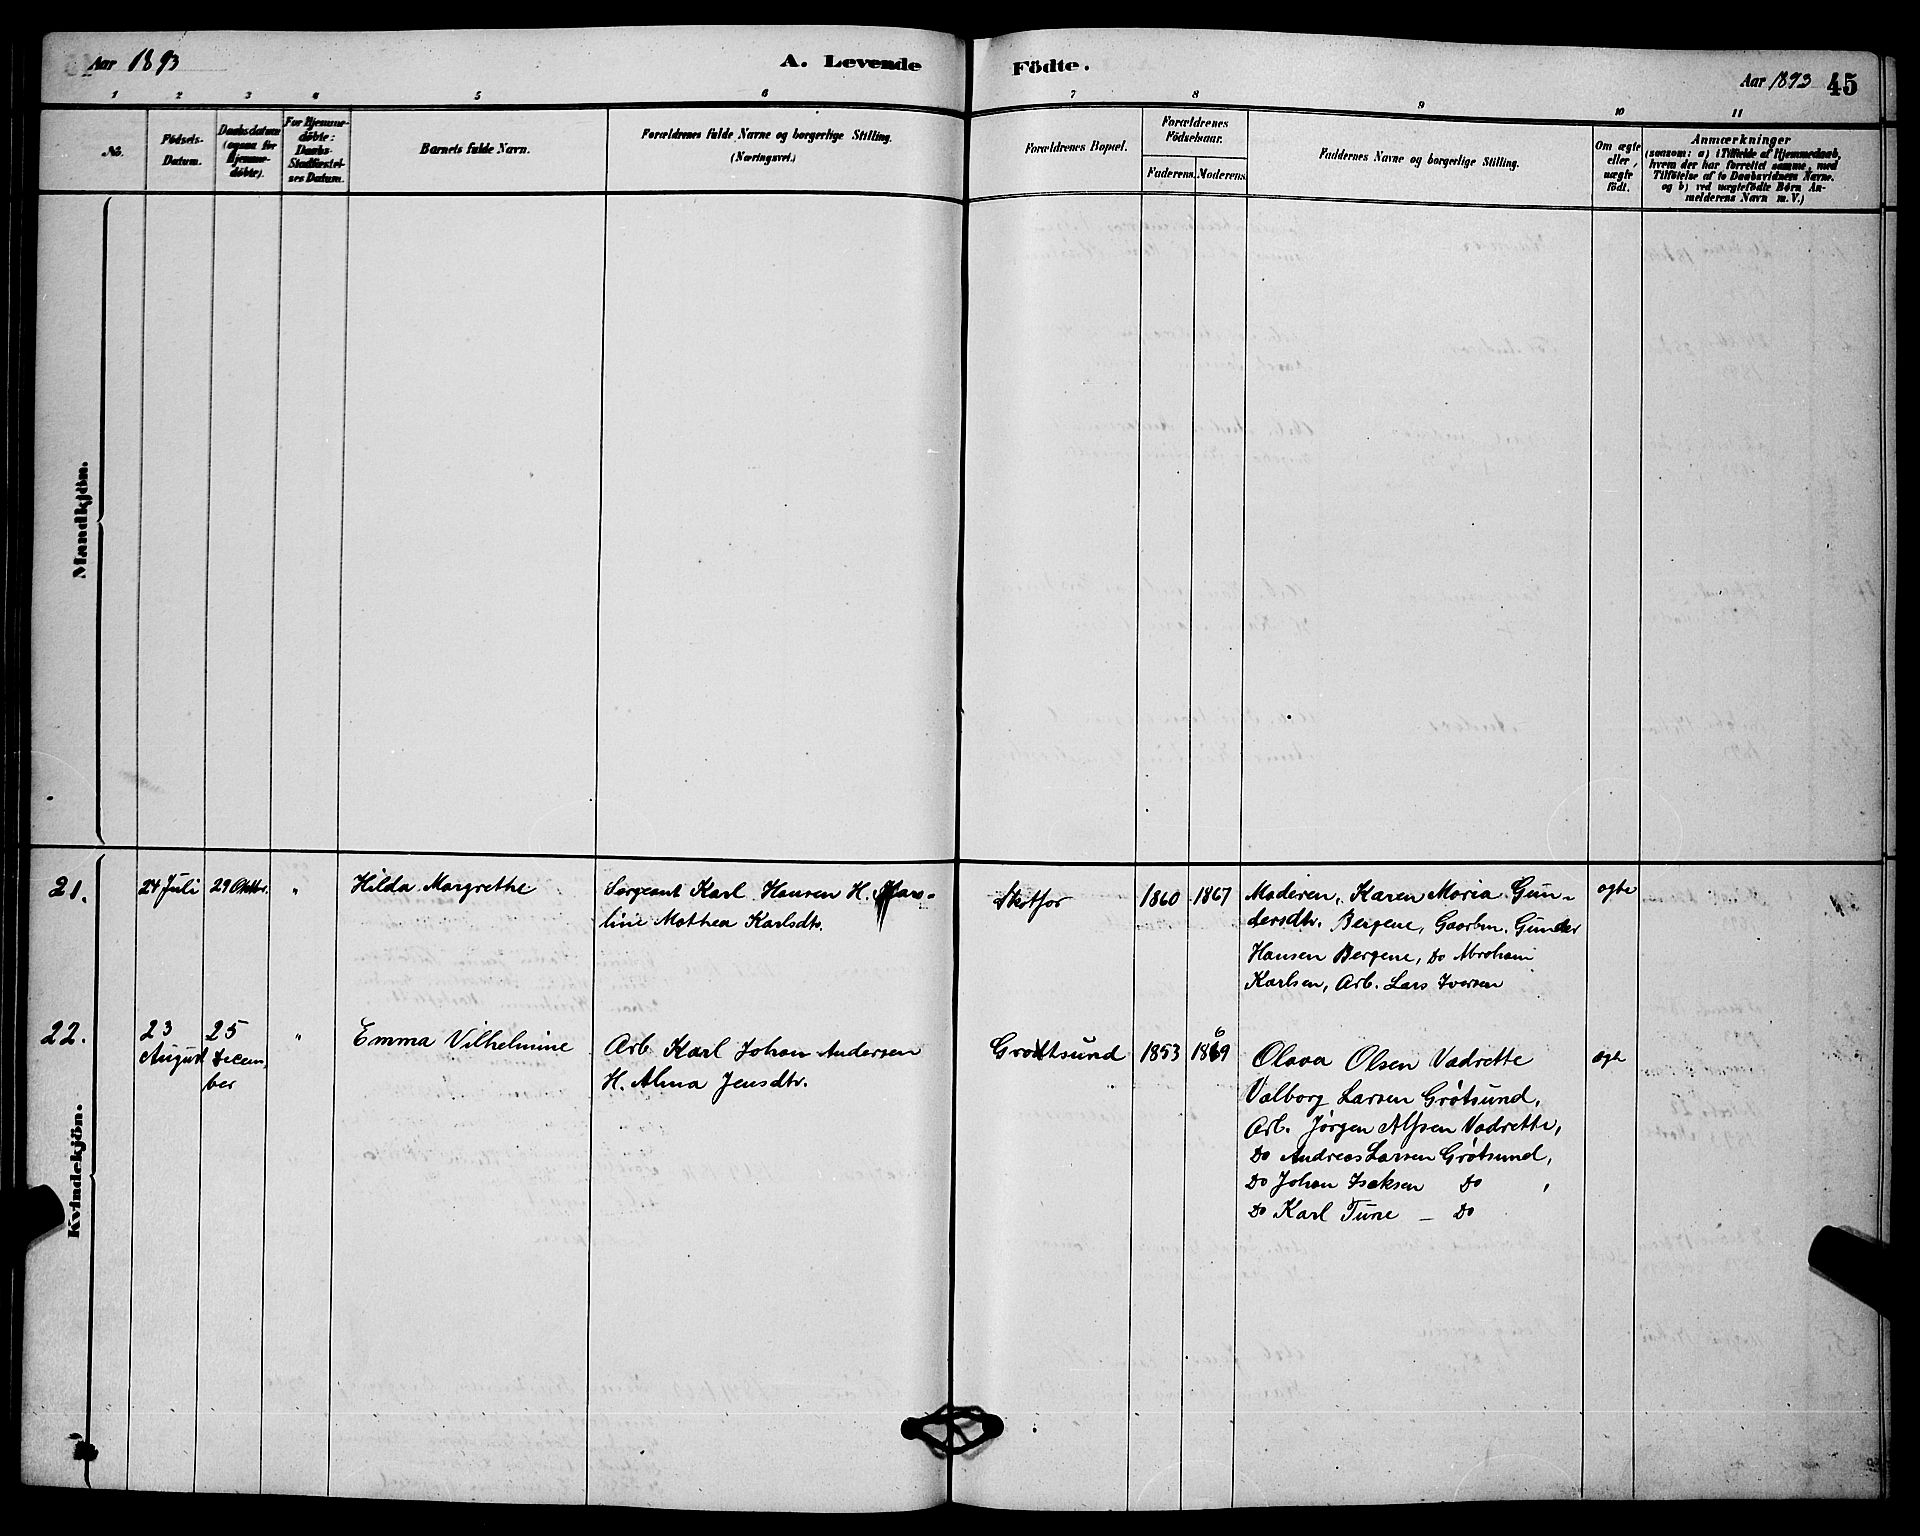 Aar 1893
A. Levende
Födte.
Aar 1893
45
1 2 3 4 5 6 7 8 9 10 11
No.
Födsels-
Datum.
Daabsdatum
(ogsaa for
Hjemme-
döbte).
For Hjemme-
döbte:
Daabs-
Stadfæstel-
ses Datum.
Barnets fulde Navn.
Forældrenes fulde Navne og borgerlige Stilling.
(Næringsvei.)
Forældrenes Bopæl.
Forældrenes
Födselsaar.
Faderens. Moderens.
Faddernes Navne og borgerlige Stilling.
Om ægte
eller
uægte
födt.
Anmærkninger
(saasom: a) i Tilfælde af Hjemmedaab,
hvem der har forrettet samme, med
Tilföielse af to Daabsvidners Navne.
og b) ved uægtefödte Börn An-
melderens Navn m. V.)
Mandkjön.
Kvindekjön.
21.
24 Juli
29 Oktbr.
"
Hilda Margrethe
Sergeant Karl Hansen H. Kar-
line Mathea Karlsdtr.
Skotfos
1860
1867
Moderen, Karen Maria Gun-
dersdtr. Bergene, Gaarbr. Gunder
Hansen Bergene, Do Abraham
Karlsen, Arb. Lars Iversen
ægte
22.
23
August
25
Decem
ber
"
Emma Vilhelmine
Arb. Karl Johan Andersen
H. Alma Jensdtr.
Grøtsund
1853
1869
6
Olava Olsen Vadrette
Valborg Larsen Grøtsund,
Arb. Jørgen Alfsen Vadrette,
Do Andreas Larsen Grøtsund,
Do Johan Isaksen Do ,
Do Karl Tune — Do
ægte